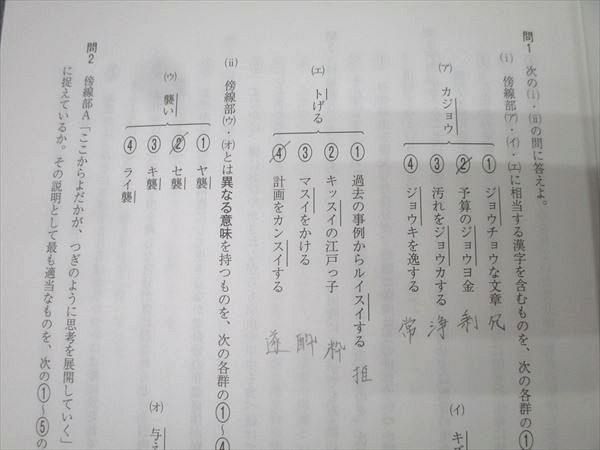 問1 次の(ⅰ)・(ⅱ)の問に答えよ。
(ⅰ) 傍線部(ア)・(イ)・(エ)に相当する漢字を含むものを、次の各群の①
(ア) カジョウ
① ジョウチョウな文章 冗
② 予算のジョウヨ金 剰
③ 汚れをジョウカする 浄
④ ジョウキを逸する 常
(イ)
(エ) トげる
① 過去の事例からルイスイする 推
② キッスイの江戸っ子 粋
③ マスイをかける 酔
④ 計画をカンスイする 遂
(ⅱ) 傍線部(ウ)・(オ)とは異なる意味を持つものを、次の各群の①〜④
(ウ) 襲い
① ヤ襲
② セ襲
③ キ襲
④ ライ襲
(オ) 与え
問2 傍線部A「ここからよだかが、つぎのように思考を展開していく」
に捉えているか。その説明として最も適当なものを、次の①〜⑤の